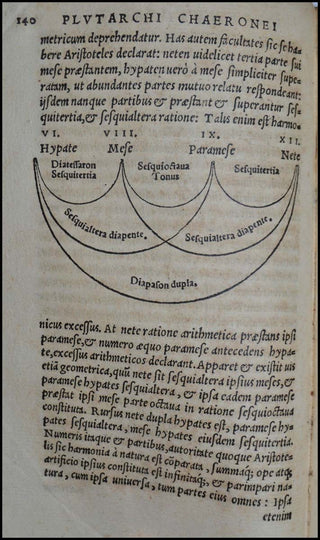 140 PLVTARCHI CHAERONEI
metricum deprehendatur. Has autem facultates sic se ha-
bere Aristoteles declarat: neten uidelicet tertia parte sui
mese præstantem, hypaten uerò à mese simpliciter supe-
ratam, ut abundantes partes mutuo relatu respondeant:
ijsdem nanque partibus & præstant & superantur ses-
quitertia, & sesqualtera ratione: Talis enim est harmo-
VI. VIII. IX. XII.
Hypate Mese Paramese Nete
Diatessaron Sesquioctaua Sesquitertia
Sesquitertia Tonus
Sesquialtera diapente. Sesquialtera diapente.
Diapason dupla.
nicus excessus. At nete ratione arithmetica præstans ipsi
paramese, & numero æquo paramese antecedens hypa-
te, excessus arithmeticos declarant. Apparet & existit uis
etiā geometrica, quū nete sit sesquialtera ipsius meses, &
paramese hypates sesquialtera, & ipsa eadem paramese
præstat ipsi mese parte octaua in ratione sesquioctaua
constituta. Rursus nete dupla hypates est, paramese hy-
pates sesquialtera, mese hypates eiusdem sesquitertia.
Numeris itaque & partibus, autoritate quoque Aristote-
lis sic harmonia à natura est cōparata, summaq; ope atq;
artificio ipsius constituta est infinitaq;, & parimpari na-
tura, cum ipsa uniuersa, tum partes eius omnes: Ipsa
etenim